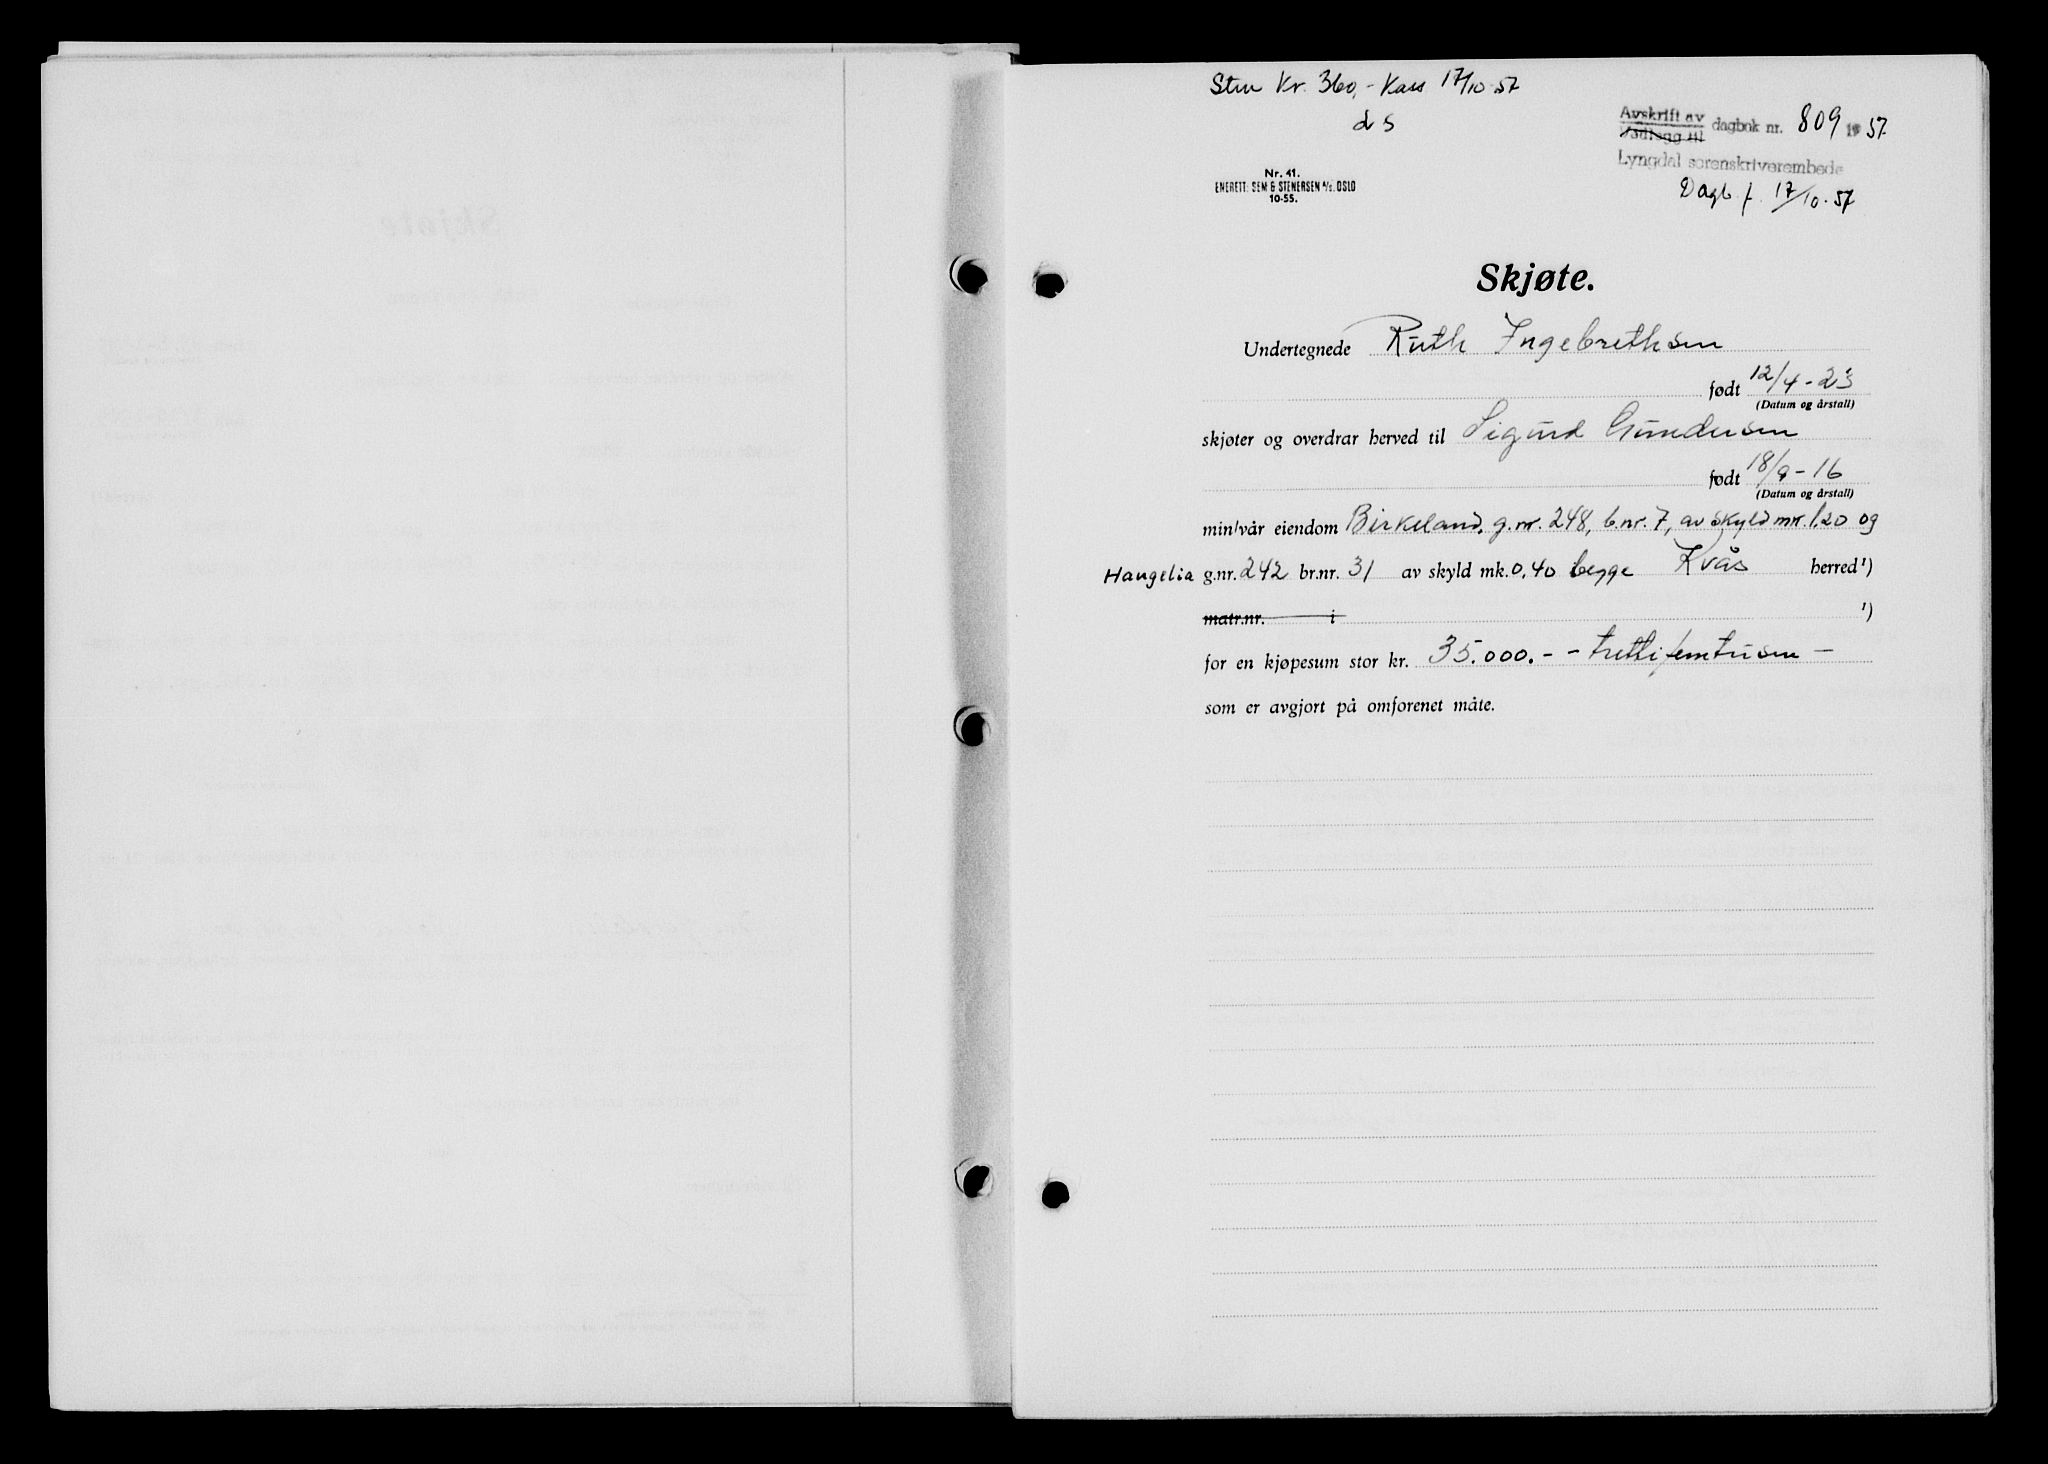 Stm Kr. 360,- Kass 17/10-57
d s
Avskrift av
Vedlegg til
dagbok nr. 809 19 57
Lyngdal sorenskriverembede
Dagb f. 17/10-57
Nr. 41.
ENERETT: SEM & STENERSEN A/S. OSLO
10-55.
Skjøte.
Undertegnede Ruth Ingebrethsen
født 12/4-23
(Datum og årstall)
skjøter og overdrar herved til Sigurd Gundersen
født 18/9-16
(Datum og årstall)
min/vår eiendom Birkeland, g.nr. 248, b.nr. 7, av skyld mk. 1,20 og
Haugelia g.nr. 242 br.nr. 31 av skyld mk. 0,40 begge Kvås herred¹)
matr.nr. i ¹)
for en kjøpesum stor kr. 35.000.- - trettifemtusen -
som er avgjort på omforenet måte.